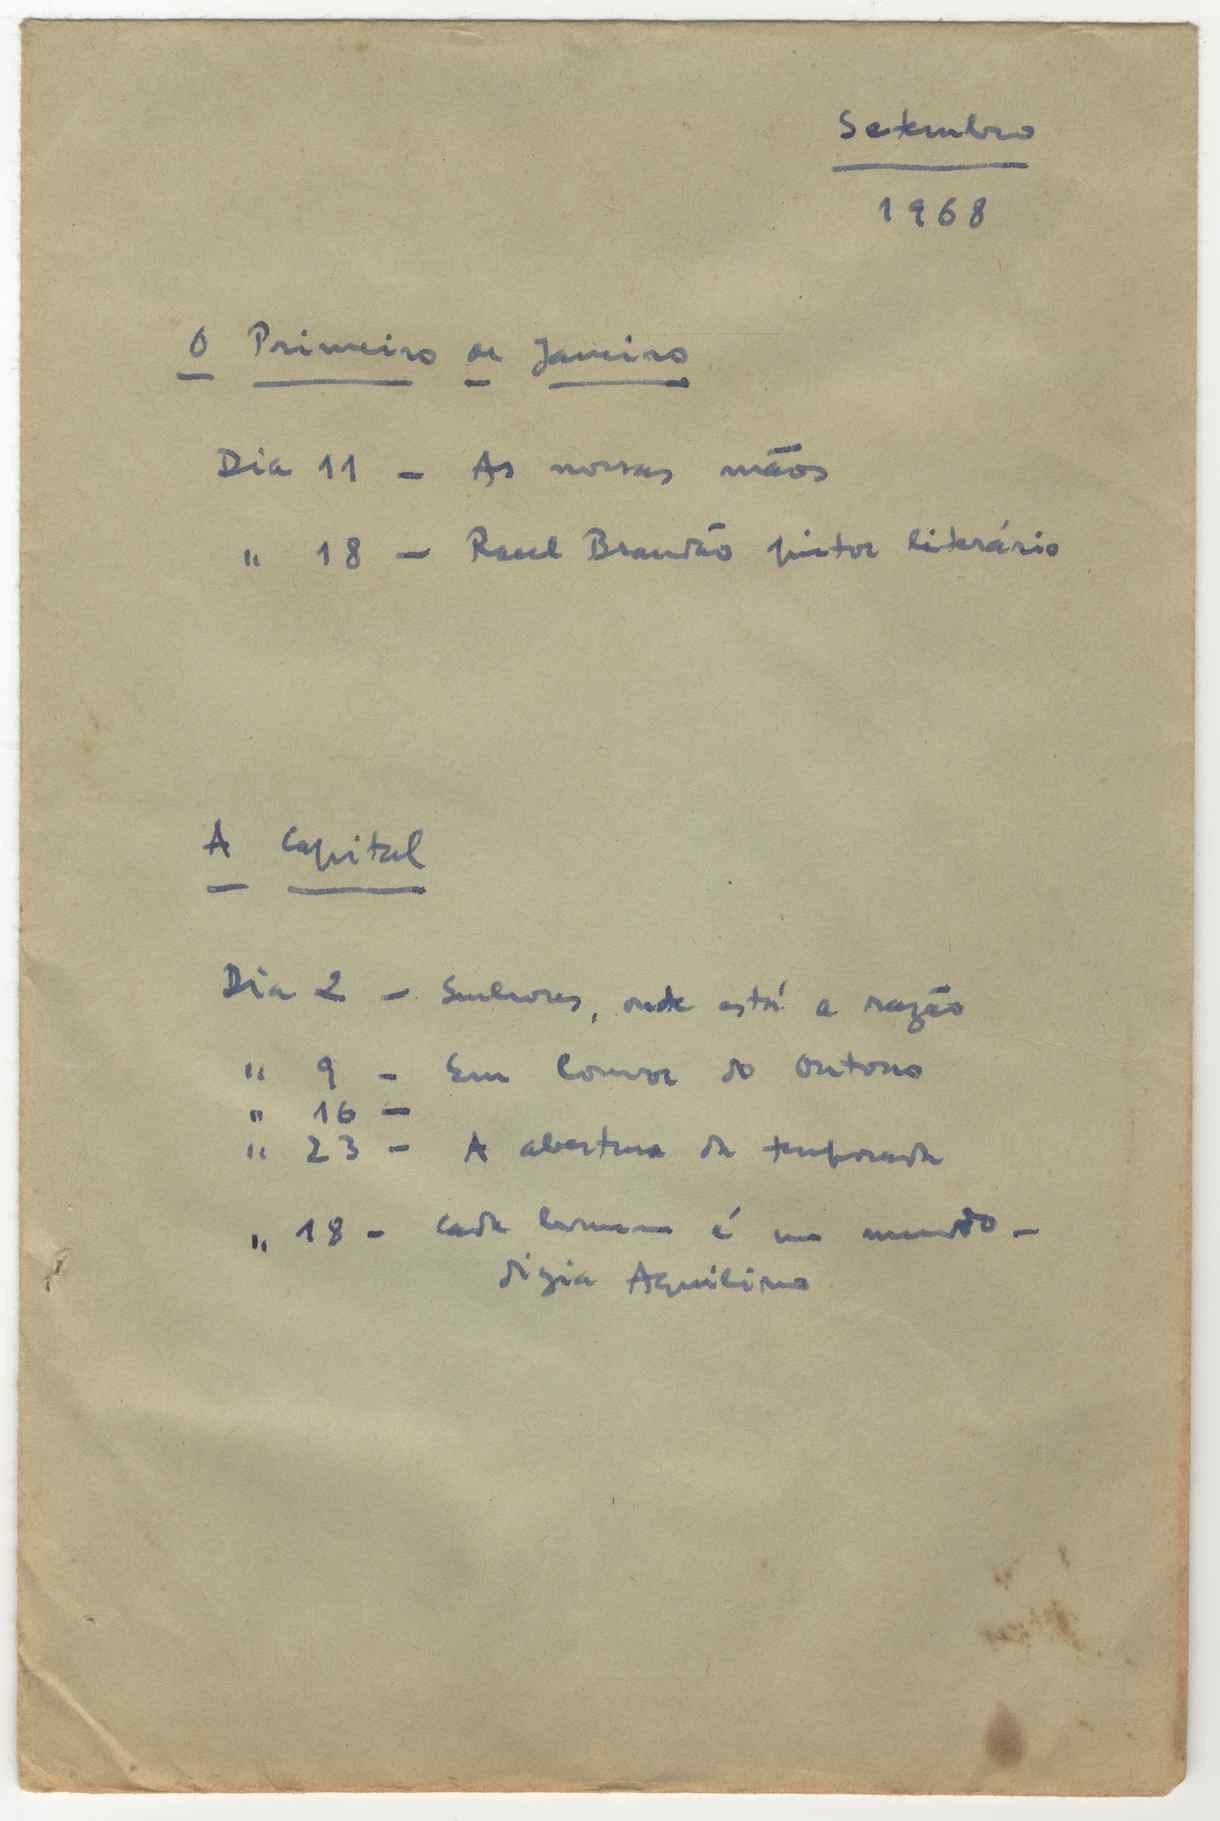 Setembro
1968
O Primeiro de Janeiro
Dia 11 - As nossas mãos
" 18 - Raul Brandão pintor literário
A Capital
Dia 2 - Senhores, onde está a razão
" 9 - Em louvor do Outono
" 16 -
" 23 - A abertura da temporada
" 18 - Cada homem é um mundo -
dizia Aquilino